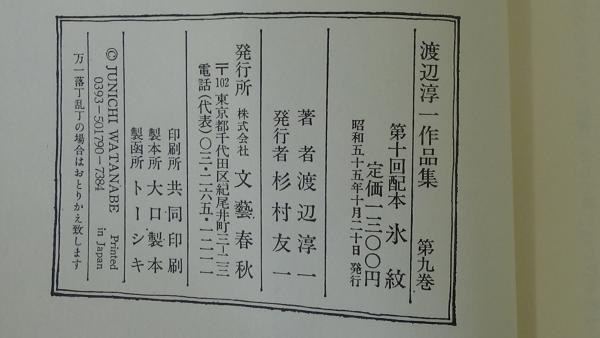 渡辺淳一作品集 第九巻
第十回配本 氷紋
定価一三〇〇円
昭和五十五年十月二十日 発行
著者 渡辺淳一
発行者 杉村友一
発行所 株式会社 文藝春秋
〒102 東京都千代田区紀尾井町三―二三
電話(代表)〇三・二六五・一二一一
印刷所 共同印刷
製本所 大口製本
製函所 トーシキ
© JUNICHI WATANABE Printed in Japan
0393―501790―7384
万一落丁乱丁の場合はおとりかえ致します